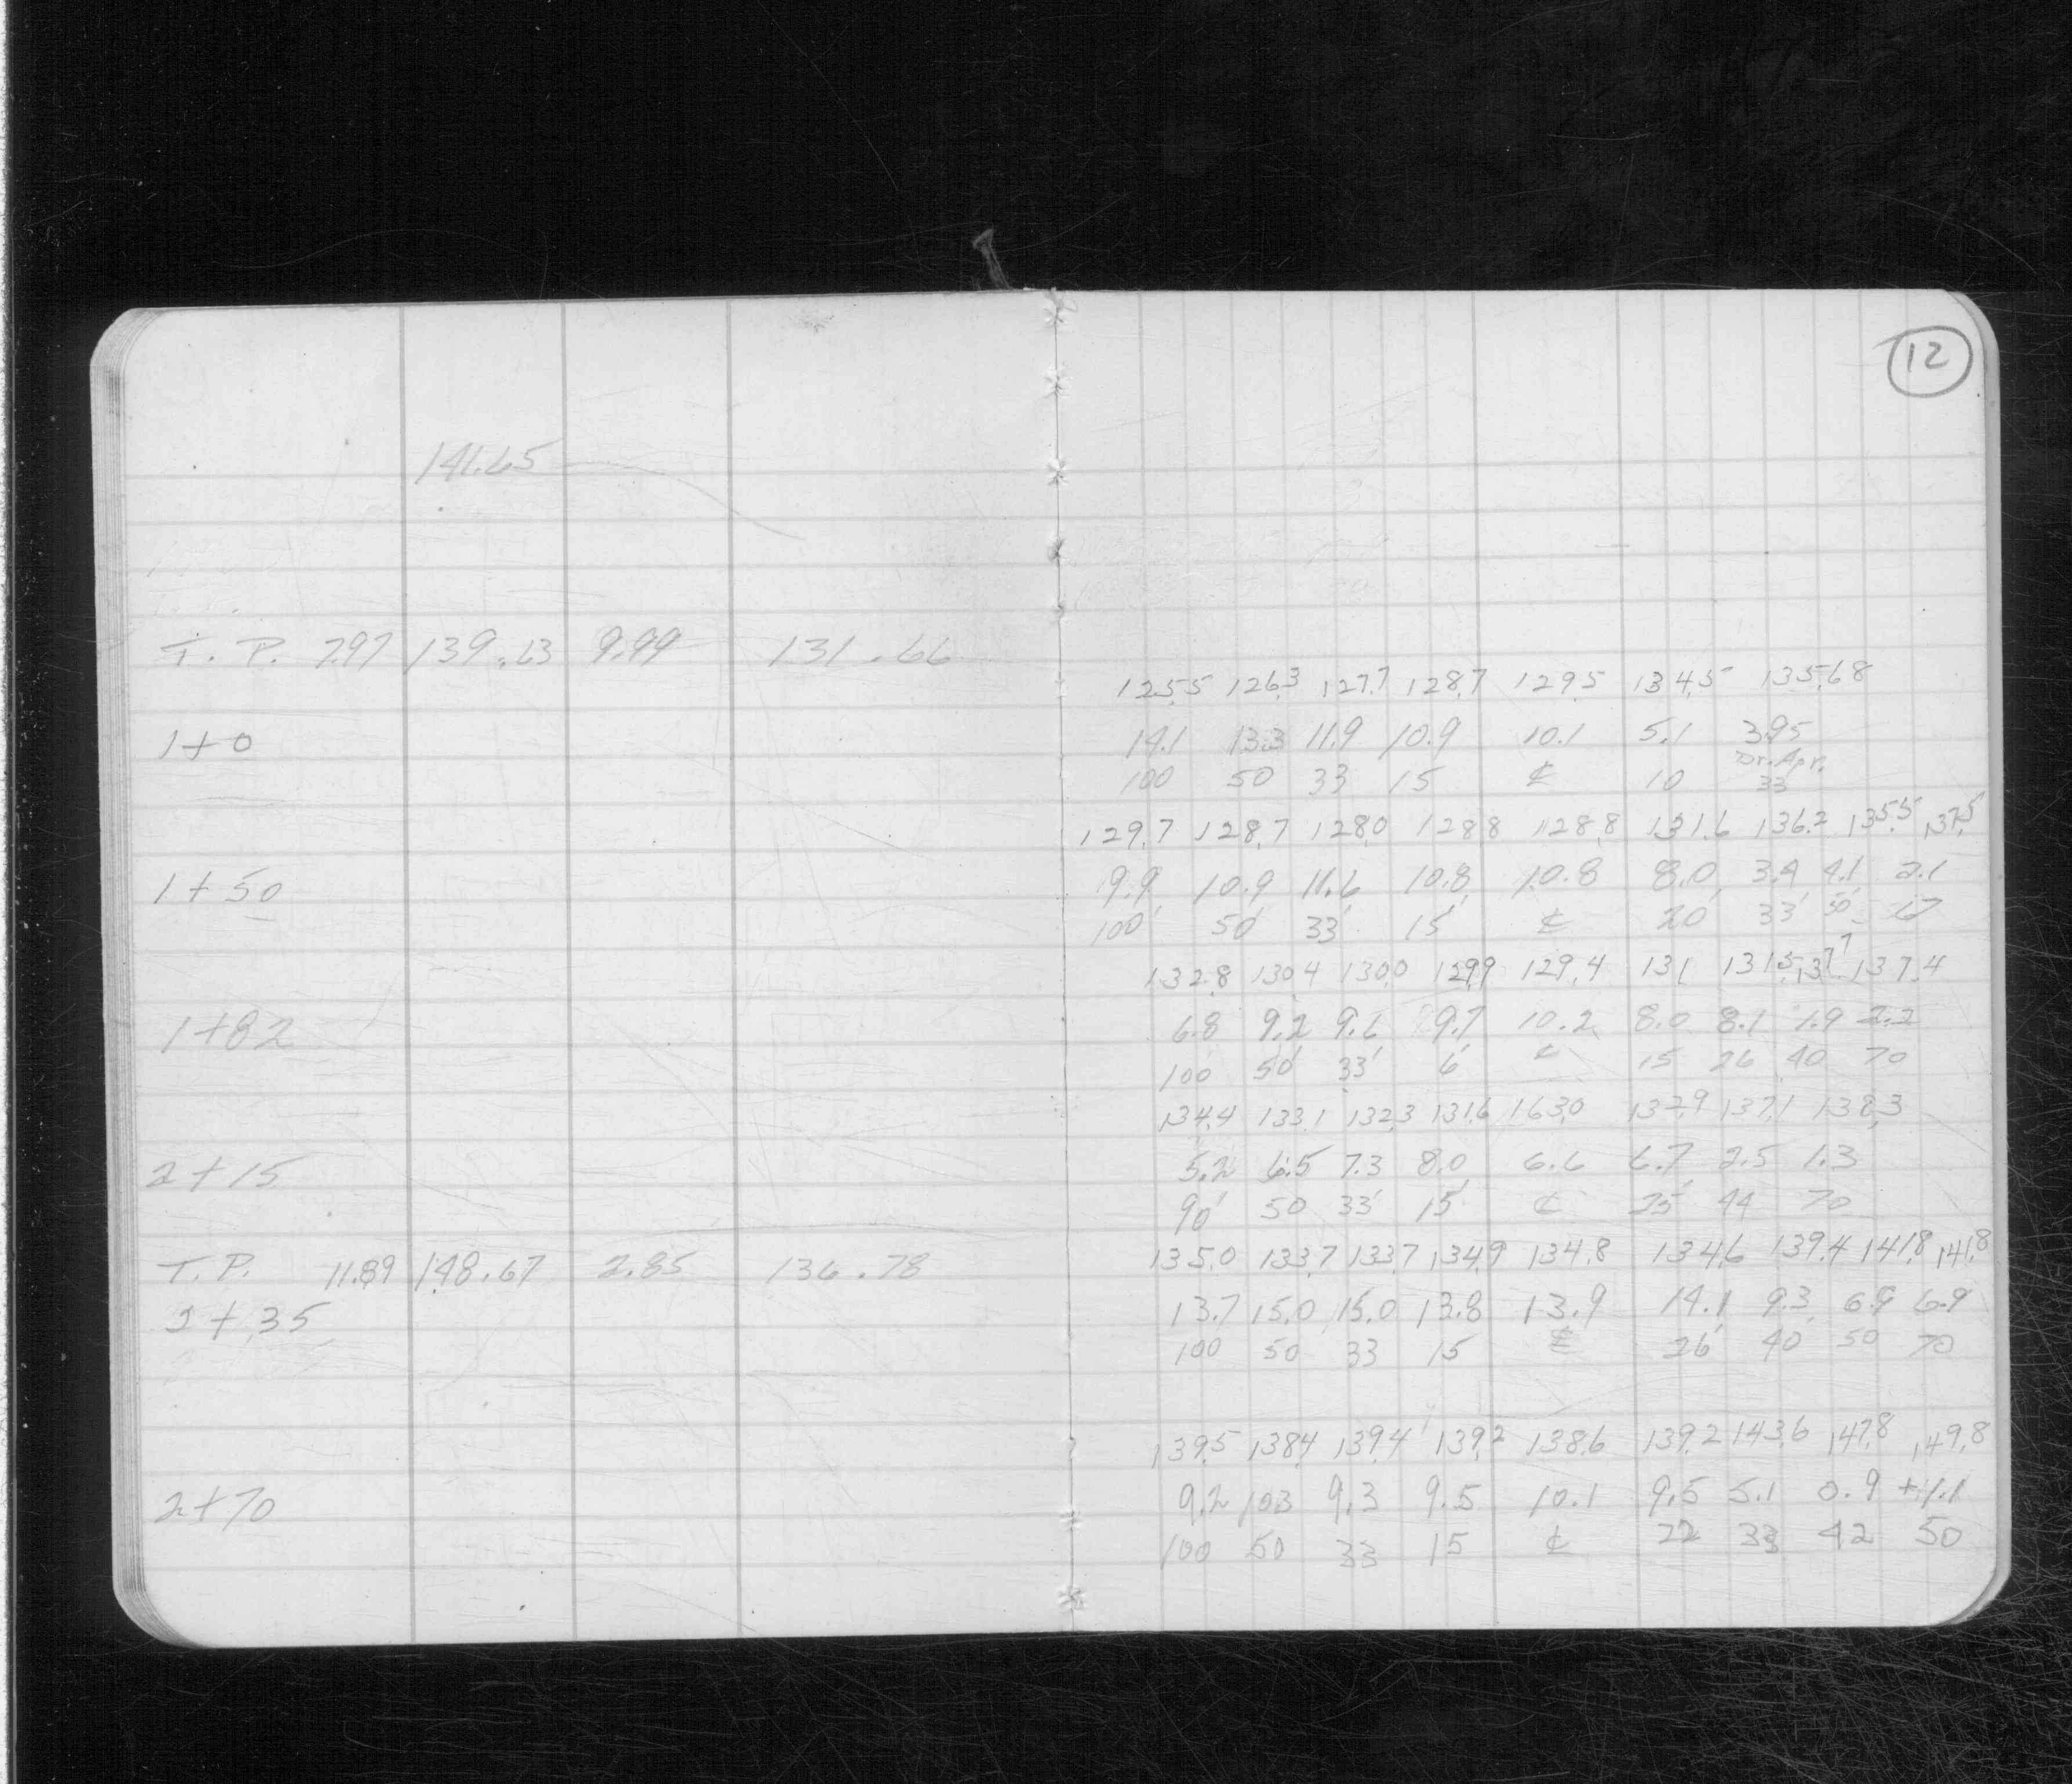 12
141.65
T. P. 7.97 139.63 9.99 131.66
125.5 126.3 127.7 128.7 129.5 134.5 135.68
1+0 14.1 13.3 11.9 10.9 10.1 5.1 3.95
Dr. Apr.
100 50 33 15 ℄ 10 33
129.7 128.7 128.0 128.8 128.8 131.6 136.2 135.5 137.5
1+50 9.9 10.9 11.6 10.8 10.8 8.0 3.4 4.1 2.1
100' 50' 33' 15' ℄ 20' 33' 50' 67
132.8 130.4 130.0 129.9 129.4 131 131.5 137.7 137.4
1+82 6.8 9.2 9.6 9.7 10.2 8.0 8.1 1.9 2.2
100 50' 33' 6' ℄ 15 26 40 70
134.4 133.1 132.3 131.6 163.0 132.9 137.1 138.3
2+15 5.2 6.5 7.3 8.0 6.6 6.7 2.5 1.3
90' 50 33' 15' ℄ 25' 44 70
135.0 133.7 133.7 134.9 134.8 134.6 139.4 141.8 141.8
T. P. 11.89 148.67 2.85 136.78
2+35 13.7 15.0 15.0 13.8 13.9 14.1 9.3 6.9 6.9
100 50 33 15 ℄ 26' 40 50 70
139.5 138.4 139.4 139.2 138.6 139.2 143.6 147.8 149.8
2+70 9.2 10.3 9.3 9.5 10.1 9.5 5.1 0.9 +1.1
100 50 33 15 ℄ 22 33 42 50